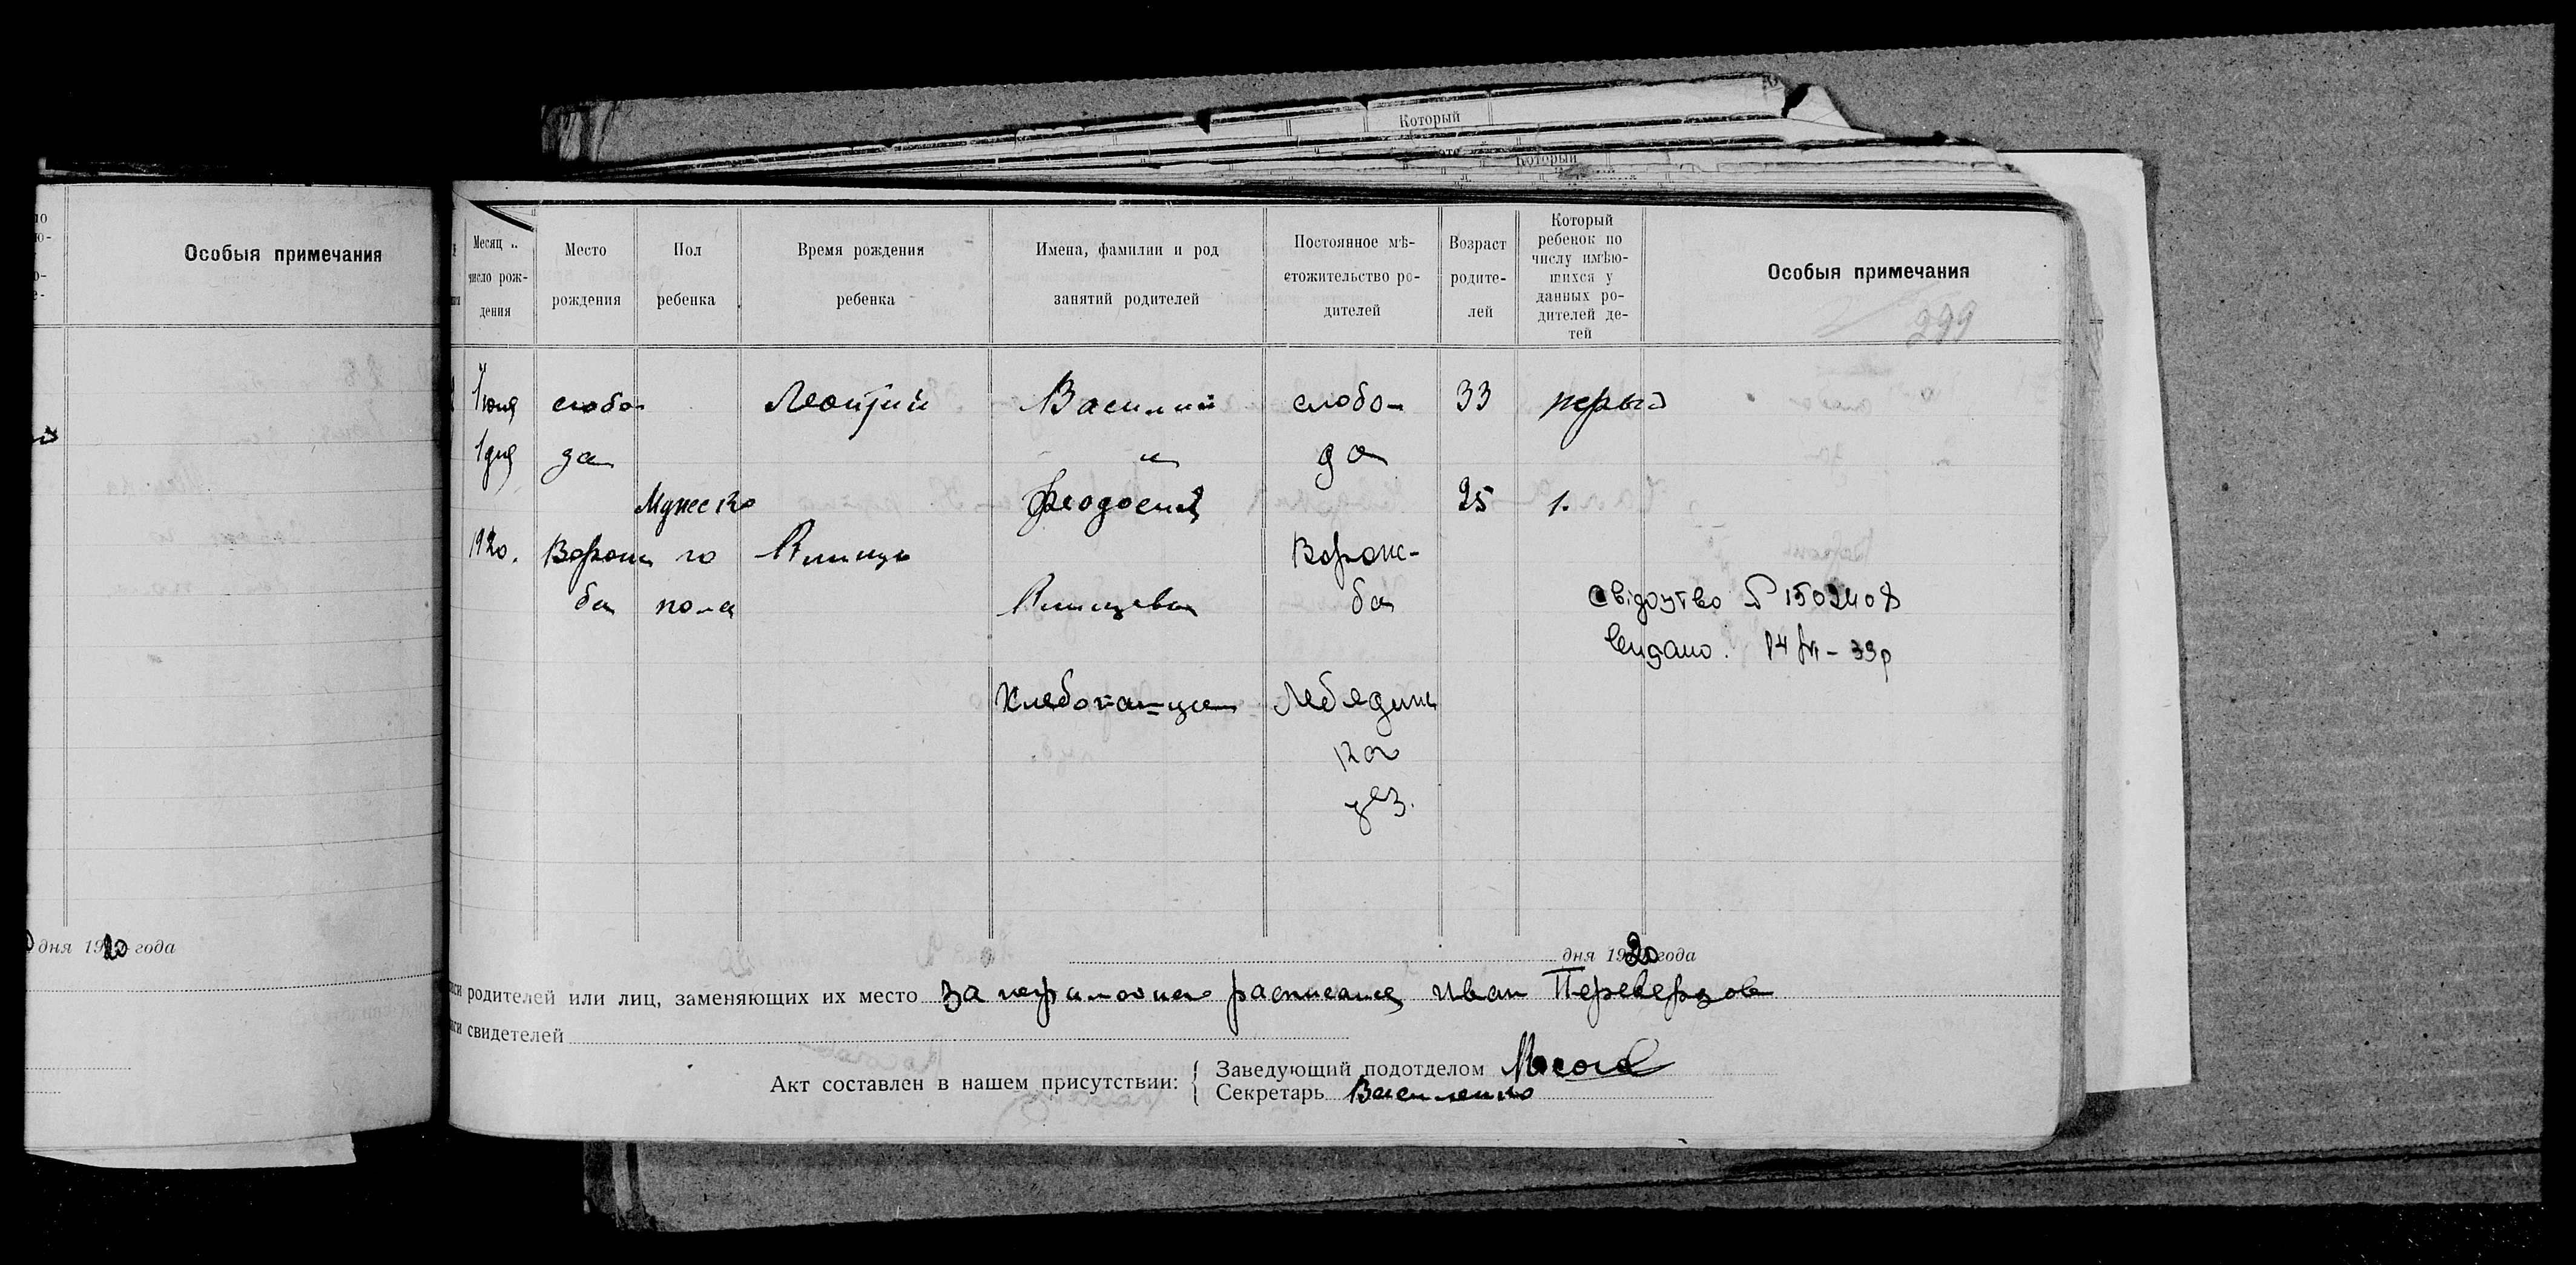 Который
Который
Особыя примечания
Месяц и
число рож-
дения
Место
рождения
Пол
ребенка
Время рождения
ребенка
Имена, фамилии и род
занятий родителей
Постоянное мѣ-
стожительство ро-
дителей
Возраст
родите-
лей
Который
ребенок по
числу имѣю-
шихся у
данных ро-
дителей де-
тей
Особыя примечания
299
Июня
1 дня
1920.
слобо
да
Ворож
ба
Мужско
го
пола
Василий
и
Феодосия
Хлебопашцы
слобо-
да
Ворож-
ба
Лебединс
ког
уез.
33
25
первый
1.
Свідоцтво
Видано.
дня 1920 года
дня 1920 года
родителей или лиц, заменяющих их место За неграмотного расписался Иван Переверзов
свидетелей
Акт составлен в нашем присутствии:
Заведующий подотделом
Секретарь Василенко